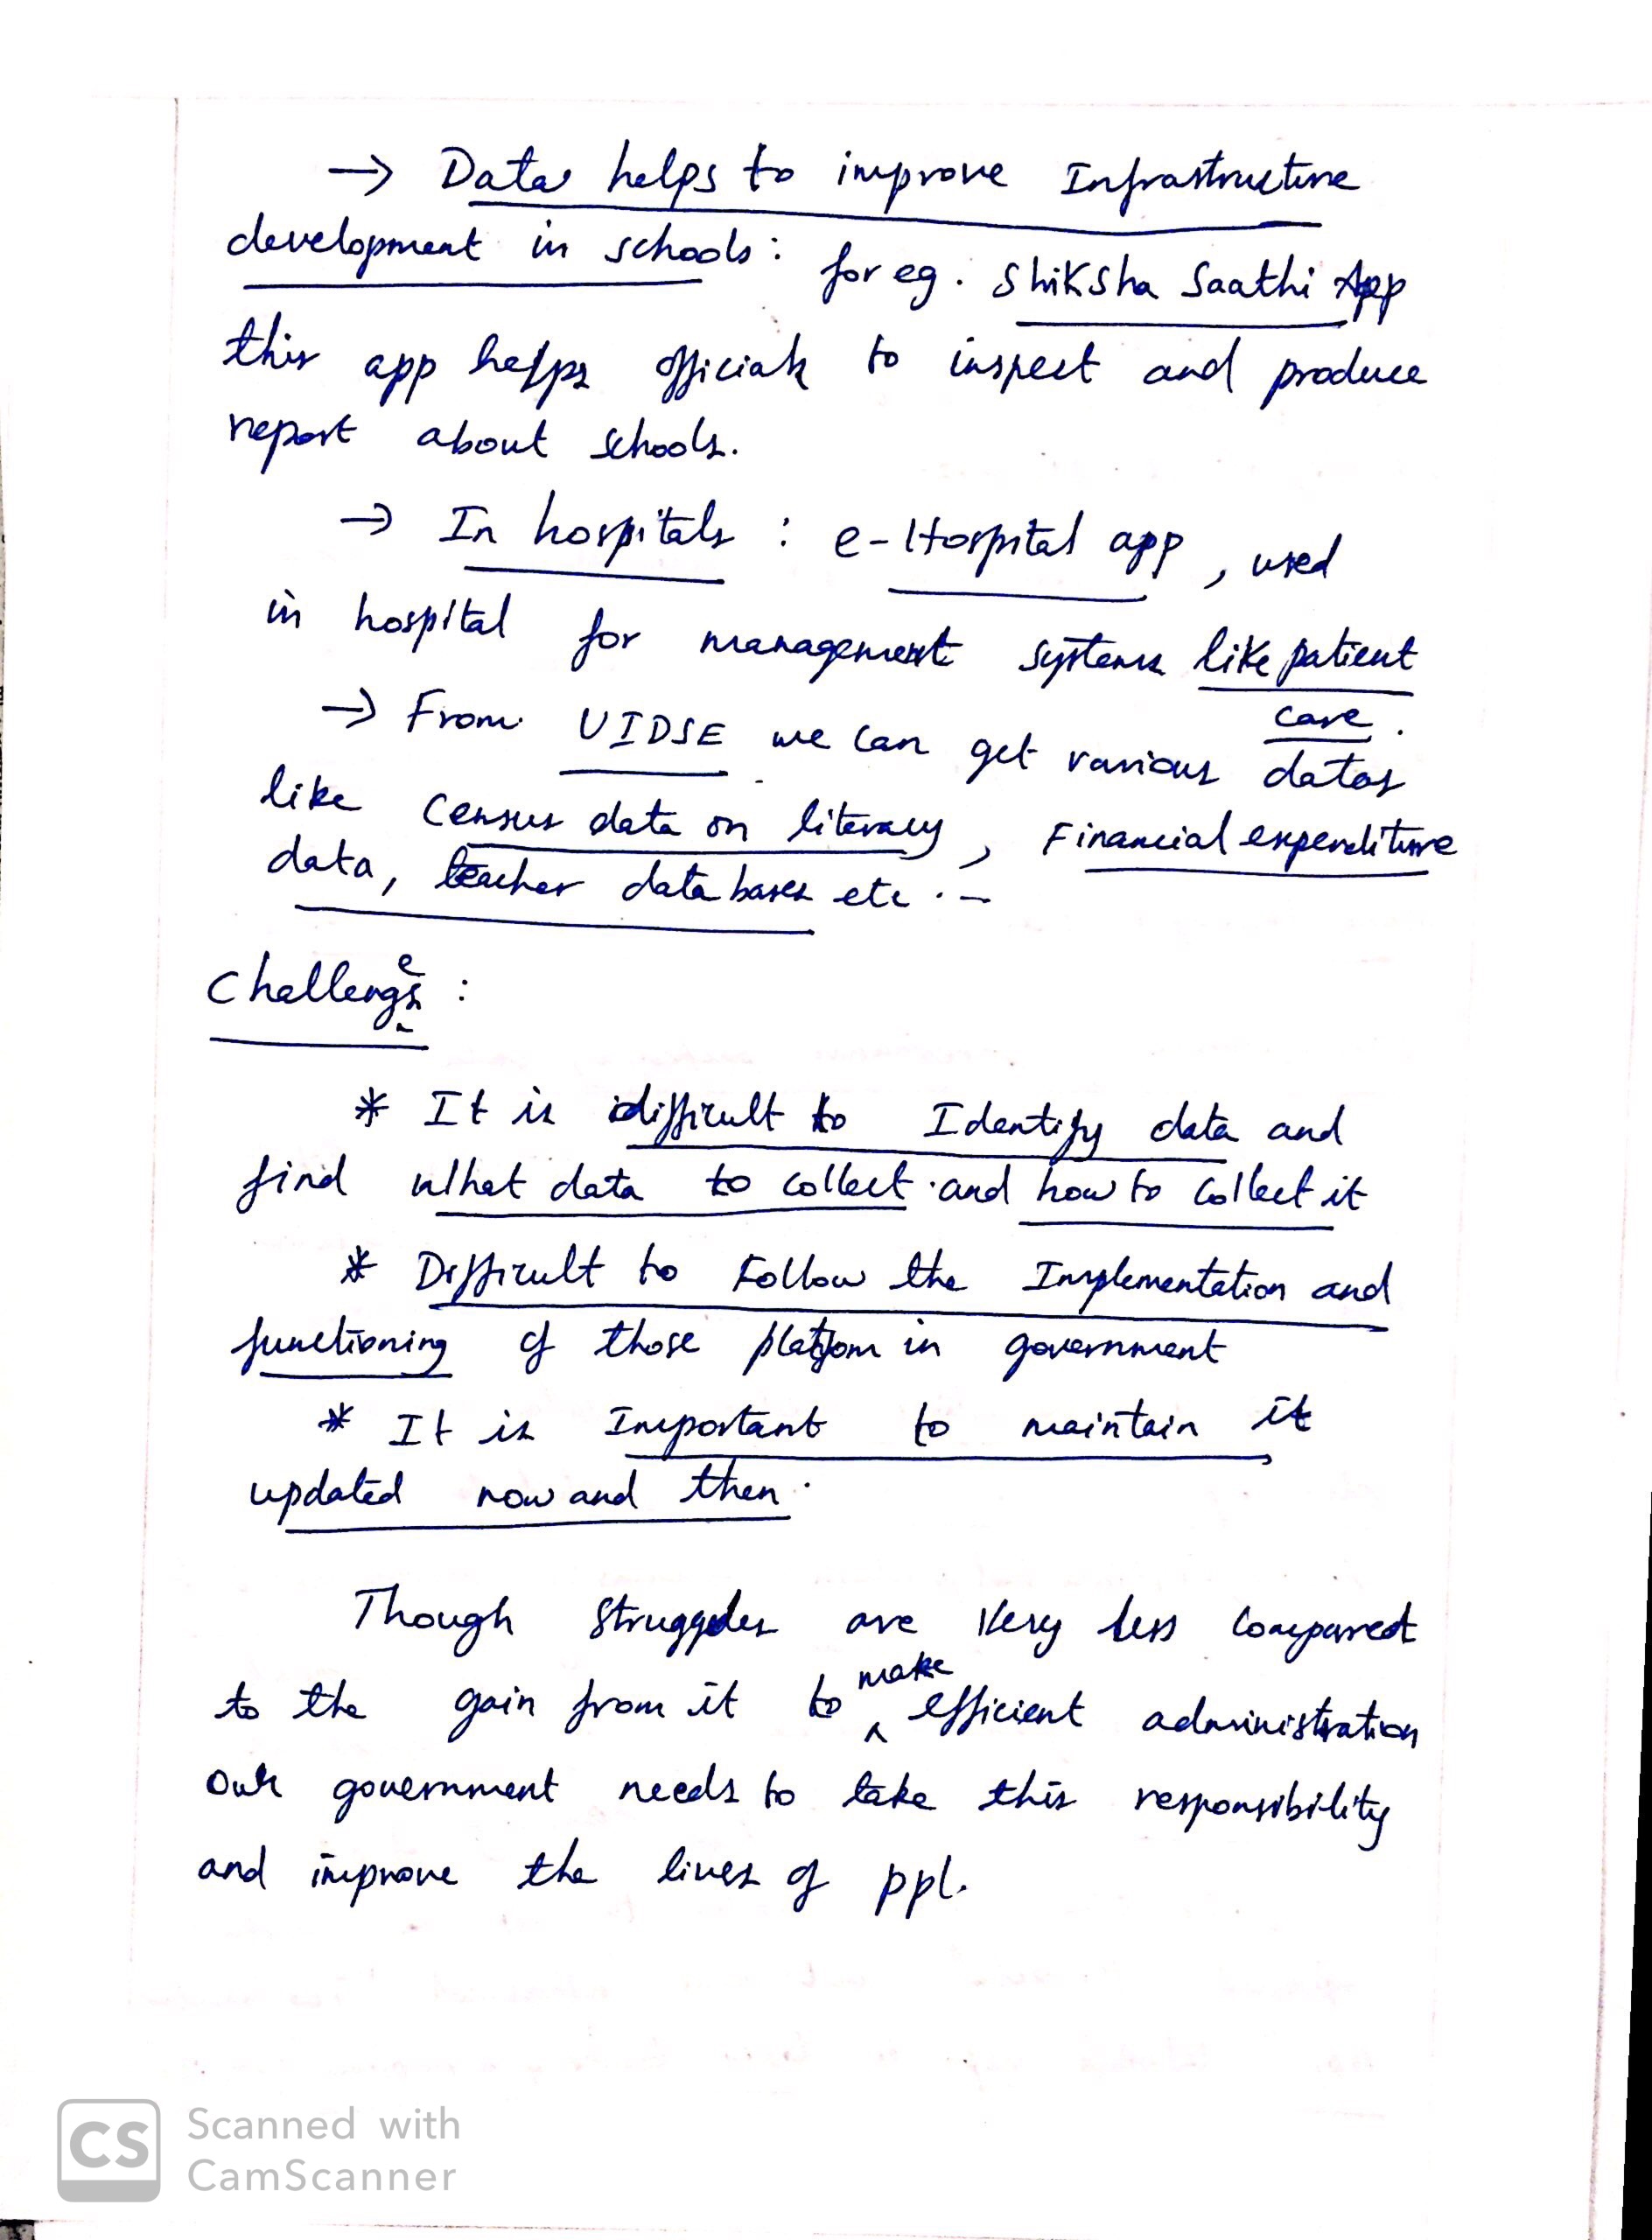 → Data helps to improve Infrastructure
development in schools: for eg. Shiksha Saathi App
this app helps officials to inspect and produce
report about schools.
→ In hospitals : e-Hospital app, used
in hospital for management systems like patient
care.
→ From UIDSE we can get various datas
like Census data on literacy, Financial expenditure
data, teacher data bases etc.
Challenges:
* It is difficult to Identify data and
find what data to collect and how to collect it
* Difficult to Follow the Implementation and
functioning of those platfom in government
* It is Important to maintain it
updated now and then.
Though struggles are very less compared
to the gain from it to make efficient administration
our government needs to take this responsibility
and improve the lives of ppl.
CS Scanned with
CamScanner